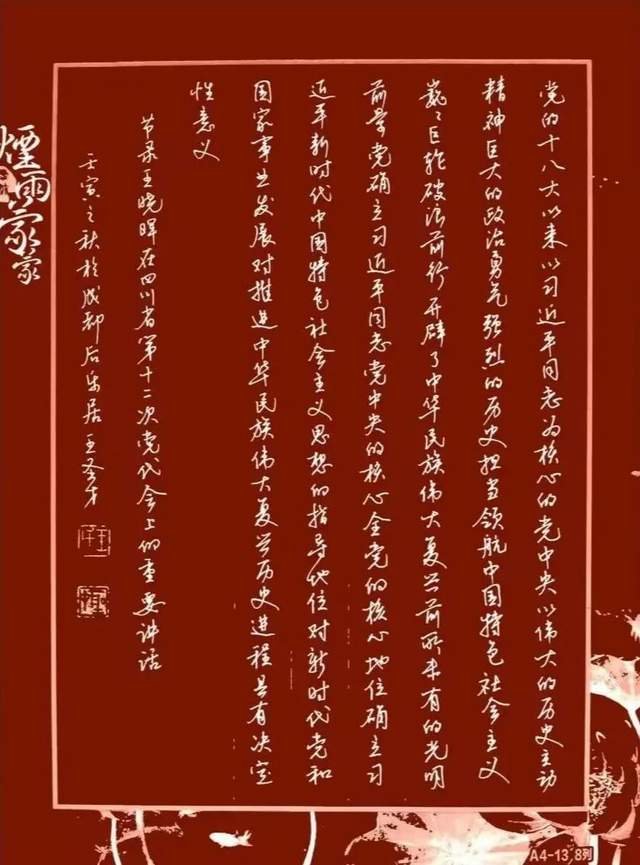 党的十八大以来以习近平同志为核心的党中央以伟大的历史主动
精神巨大的政治勇气强烈的历史担当领航中国特色社会主义
巍々巨轮破浪前行开辟了中华民族伟大复兴前所未有的光明
前景党确立习近平同志党中央的核心全党的核心地位确立习
近平新时代中国特色社会主义思想的指导地位对新时代党和
国家事业发展对推进中华民族伟大复兴历史进程具有决定
性意义
节录王晓晖在四川省第十二次党代会上的重要讲话
壬寅之秋於成都后乐居王
煙雨
A4-13 8列